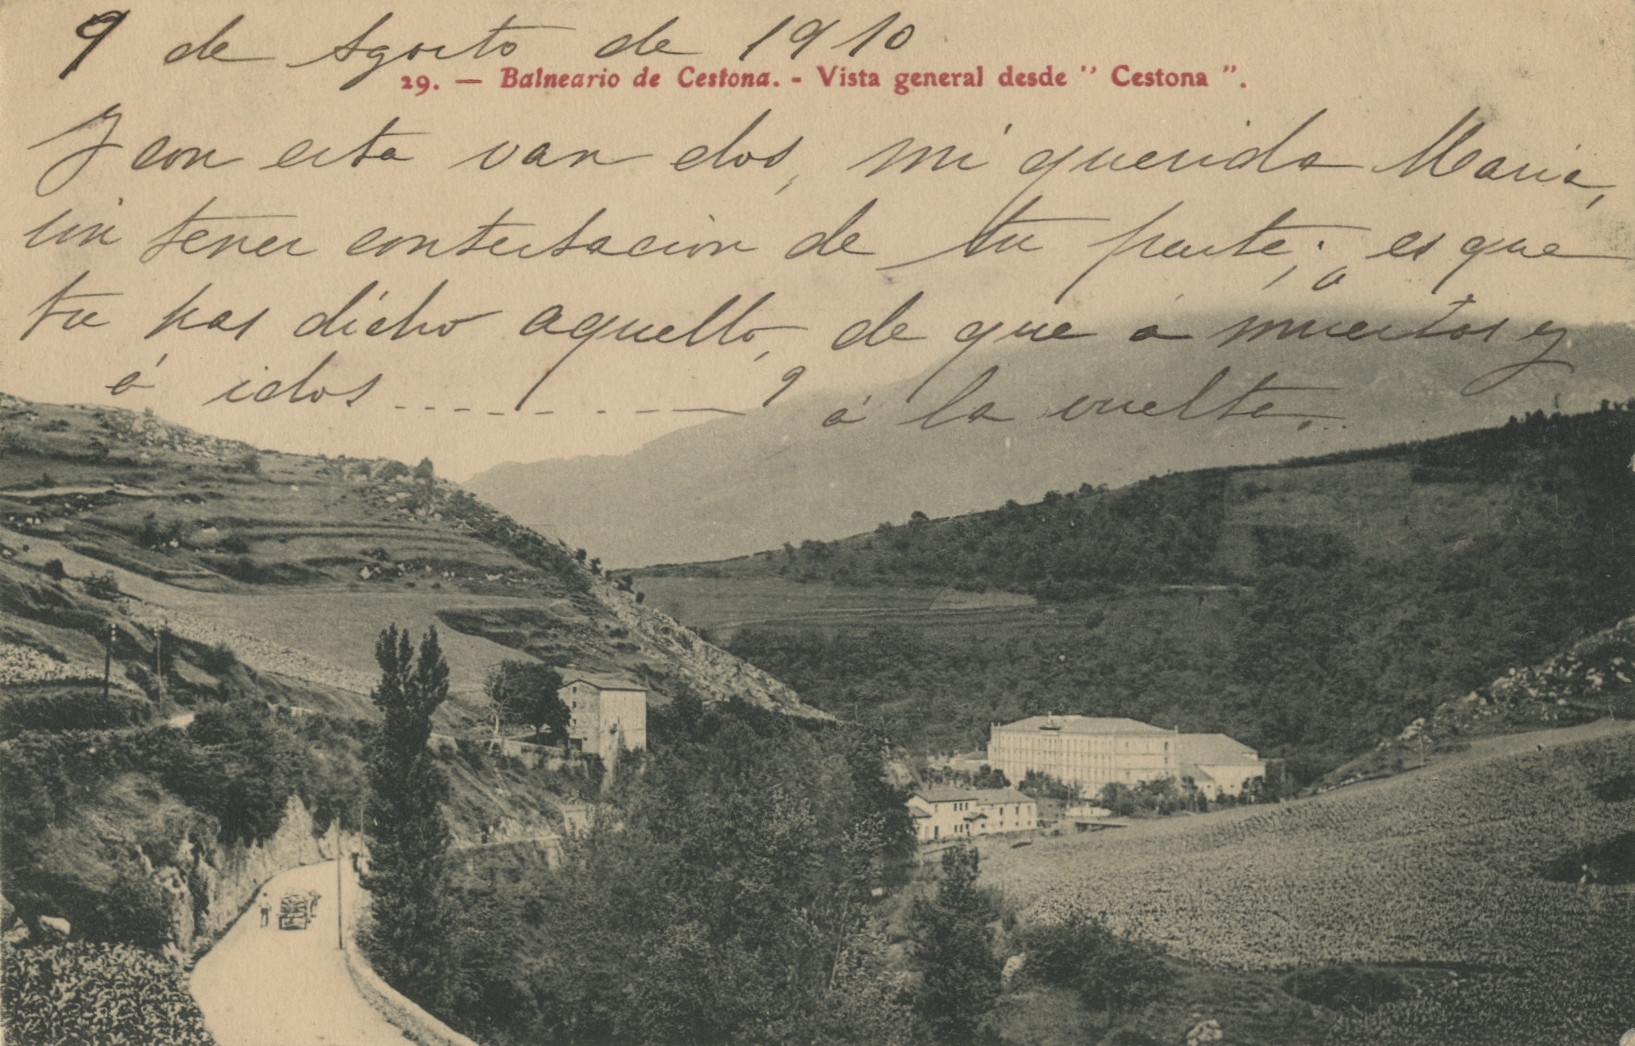 9 de Agosto de 1910
29. — Balneario de Cestona. - Vista general desde " Cestona ".
Y con esta van dos, mi querida Maria,
sin tener contestación de tu parte; es que
tu has dicho aquello, de que á muertos y
á idos ---------? á la vuelta.